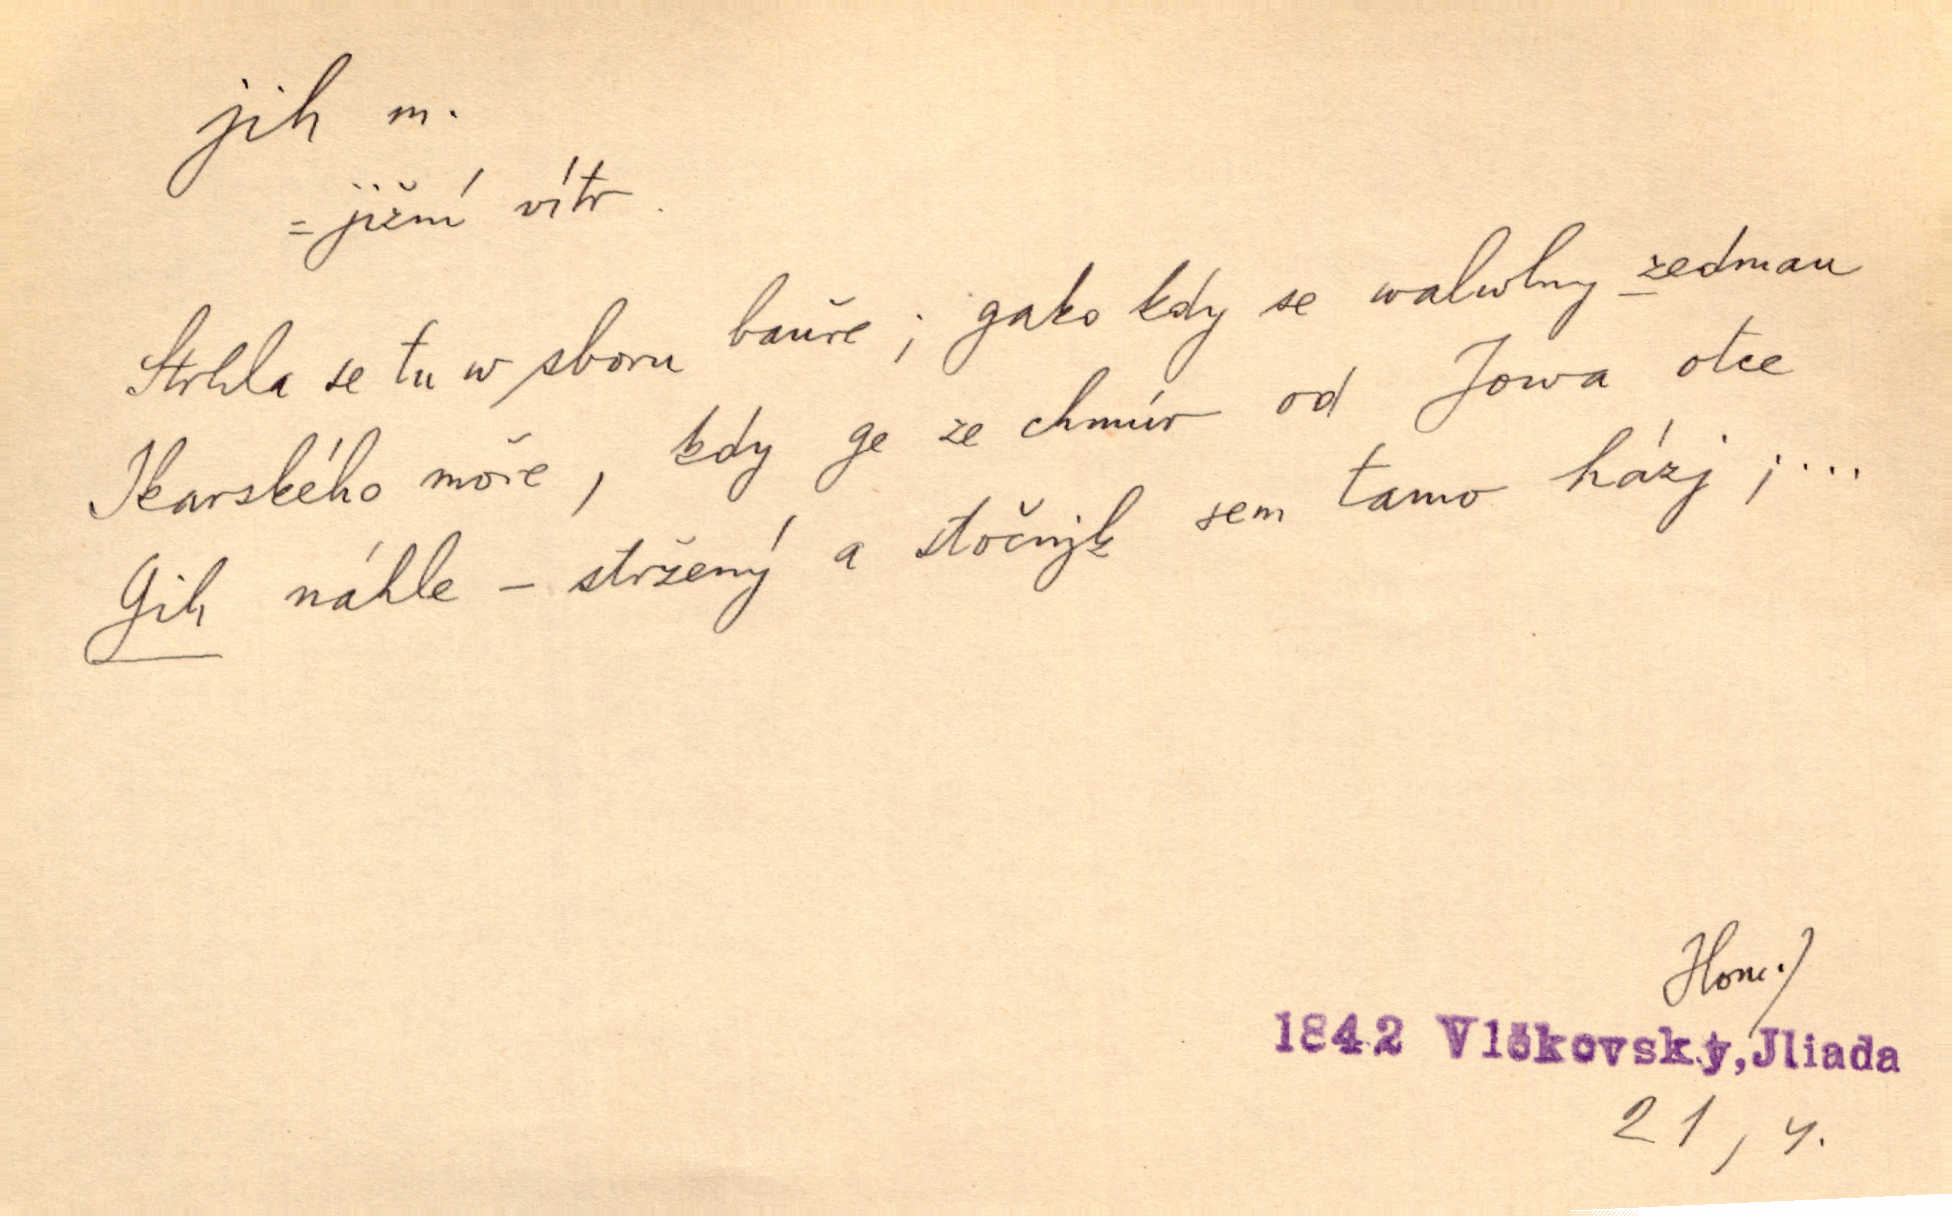 jih m.
= jižní vítr.
Strhla se tu w sboru bauře; gako kdy se walwlny zedmau
Ikarského moře, kdy ge ze chmúr od Jowa otce
Gih náhle – stržený a stočnjk sem tamo házj ;....
Hom.)
1842 Vlčkovský, Jliada
21, y.